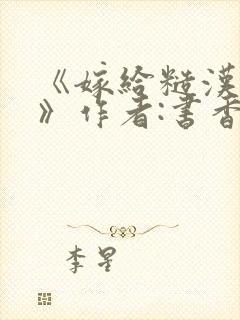 《嫁给糙汉
》作者:书香
李星